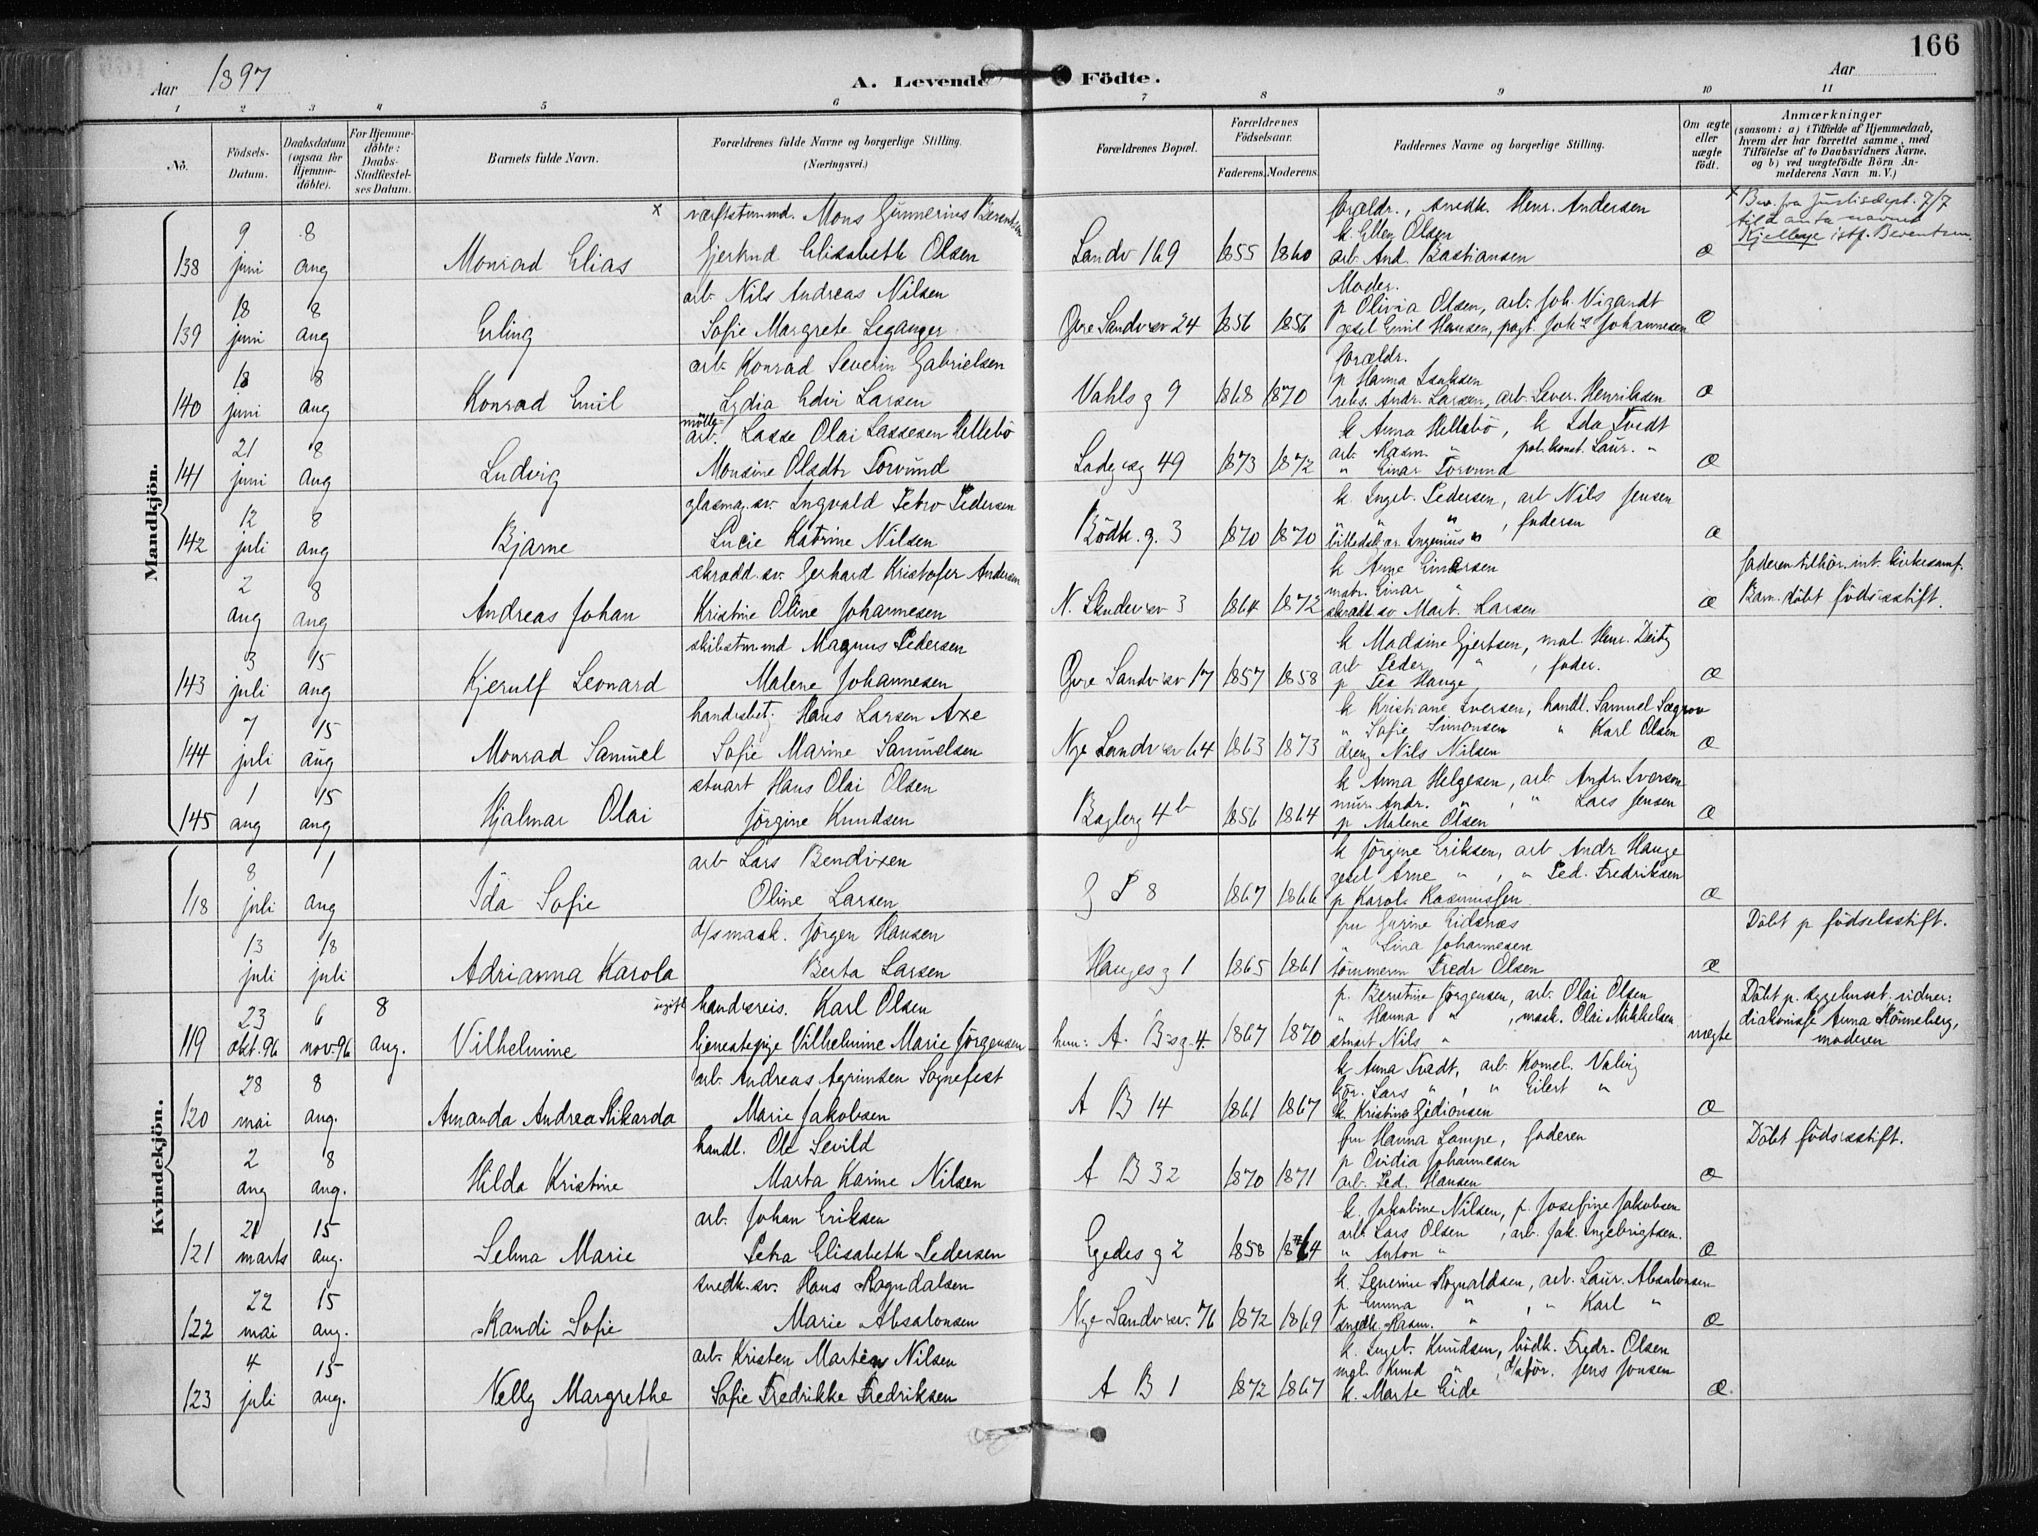 166
Aar 1897
A. Levende Födte.
Aar
1 2 3 4 5 6 7 8 9 10 11
No.
Födsels-Datum.
Daabsdatum (ogsaa for Hjemme-döbte).
For Hjemme-döbte: Daabs-Stadfæstel-ses Datum.
Barnets fulde Navn.
Forældrenes fulde Navne og borgerlige Stilling. (Næringsvei.)
Forældrenes Bopæl.
Forældrenes Födselsaar.
Faderens. Moderens.
Faddernes Navne og borgerlige Stilling.
Om ægte eller uægte födt.
Anmærkninger
(saasom: a) i Tilfælde af Hjemmedaab, hvem der har forrettet samme, med Tilföielse af to Daabsvidners Navne, og b) ved uægtefödte Börn An-melderens Navn m. V.)
Mandkjön.
x Bev. fra Justisdept. 7/7
til å anta navnet
istf. Berentsen.
138 9 juni 8 aug Monrad Elias x Mons Gunnerius Berentsen
Gjertrud Elisabeth Olsen Sandv 169 1855 1860 forældr., snedk. Henr. Andersen
k. Ellen Olsen
arb. And. Bastiansen æ
139 18 juni 8 aug Erling arb. Nils Andreas Nilsen
Sofie Margrete Leganger Øvre Sandvsv 24 1856 1856 Moder.
p Olivia Olsen, arb. Joh. Vigandt
gesel Emil Hansen, Johs Johannesen æ
140 18 juni 8 aug Konrad Emil arb. Konrad Severin Gabrielsen
Lydia Edvi Larsen Vahls g 9 1868 1870 forældr.
p Hanna Isaksen
Andr. Larsen, arb. Sever. Henriksen æ
141 21 juni 8 aug Ludvig mölle-
arb. Lasse Olai Lassesen Hellebö
Monsine Olsdtr Torvund Ladeg.sg 49 1873 1872 k Anna Hellebö, k Ida Tvedt
arb. Rasm. " pol.konst. Laur. "
" Einar Torvund æ
142 12 juli 8 aug Bjarne glasmag.sv. Ingvald Petro Pedersen
Lucie Katrine Nilsen Bödk. g. 3 1870 1870 k Ingeb. Pedersen, arb Nils Jensen
" " , faderen
Ingenius " æ
2 aug 8 aug Andreas Johan skrædd.sv. Gerhard Kristofer Andersen
Kristine Oline Johannesen N. Skudevsv 3 1864 1872 k Anne Einersen
matr. Einar "
skrædd sv Mart. Larsen æ faderen tilhör. int. kirkesamf.
Barn. döbt födsesstift.
143 3 juli 15 aug Kjerulf Leonard skibstmmd Magnus Pedersen
Malene Johannesen Øvre Sandvsv 17 1857 1858 k Madsine Gjertsen, mal. Henr.
arb Peder " , fader.
p Tea Hauge æ
144 7 juli 15 aug Monrad Samuel handsbet. Hans Larsen Axe
Sofie Marine Samuelsen Nye Sandvsv 64 1863 1873 k Kristiane Iversen, handl. Samuel
" Sofie Simonsen " Karl Olsen
dreng Nils Nilsen æ
145 1 aug 15 aug Hjalmar Olai stuart Hans Olai Olsen
Jörgine Knudsen Bagberg 4b 1856 1864 k Anna Helgesen, arb Andr. Iversen
mur. Andr. " , " Lars Jensen
p Malene Olsen æ
Kvindekjön.
118 8 juli 1 aug Ida Sofie arb Lars Bendixen
Oline Larsen 8 1867 1866 k Jörgine Eriksen, arb Andr Hauge
gesel Arne " , " Ped. Fredriksen
p Karol. Rasmussen æ
13 juli 18 juli Adrianna Karola d/smask. Jörgen Hansen
Berta Larsen Hauges g 1 1865 1861 fru Gurine Eidsnæs
" Lina Johannesen
tömmerm Fredr Olsen æ Döbt p födselsstift.
119 23 okt. 96 6 nov. 96 8 aug. Vilhelmine ugift handsreis. Karl Olsen
tjenestepige Vilhelmine Marie Jörgensen hun: A. B sg. 4. 1867 1870 p. Berntine Jörgensen, arb. Olai Olsen
" Hanna " , mask. Olai Mikkelsen
stuart Nils " uægte Döbt p. sygehuset. vidner:
diakonisse Anna Rönneberg,
moderen
120 28 mai 8 aug. Amanda Andrea Rikarda arb. Andreas Agrimsen Sognefest
Marie Jakobsen A B 14 1861 1867 k Anna Tvedt, arb. Kornel. Valvig
Lars " , " Eilert "
k. Kristine Gedionsen æ
2 aug 8 aug. Hilda Kristine handl. Ole Sevild
Marta Karine Nilsen A B 32 1870 1871 fru Hanna Lampe, faderen
p Ovidia Johannesen
arb. Ped. Hansen æ Döbt födsesstift.
121 21 marts 15 aug. Selma Marie arb. Johan Eriksen
Petra Elisabeth Pedersen Egedes g 2 1858 1864 k. Jakobine Nilsen, p. Josefine Jakobsen
arb. Lars Olsen , arb. Jak. Ingebrigtsen.
" Anton " æ
122 22 mai 15 aug. Randi Sofie snedk.sv. Hans Rogndalsen
Marie Absalonsen Nye Sandvsv. 76 1872 1869 k. Severine Rognaldsen, arb. Laur. Absalonsen
p Emma " , " Karl "
snedk. Rasm. " æ
123 4 juli 15 aug. Nelly Margrethe arb. Kristen Martin Nilsen
Sofie Fredrikke Fredriksen A B 1 1872 1867 k. Ingeb. Knudsen, bödk. Fredr. Olsen
Knud " , Jens Jonsen
k. Marte Eide æ.